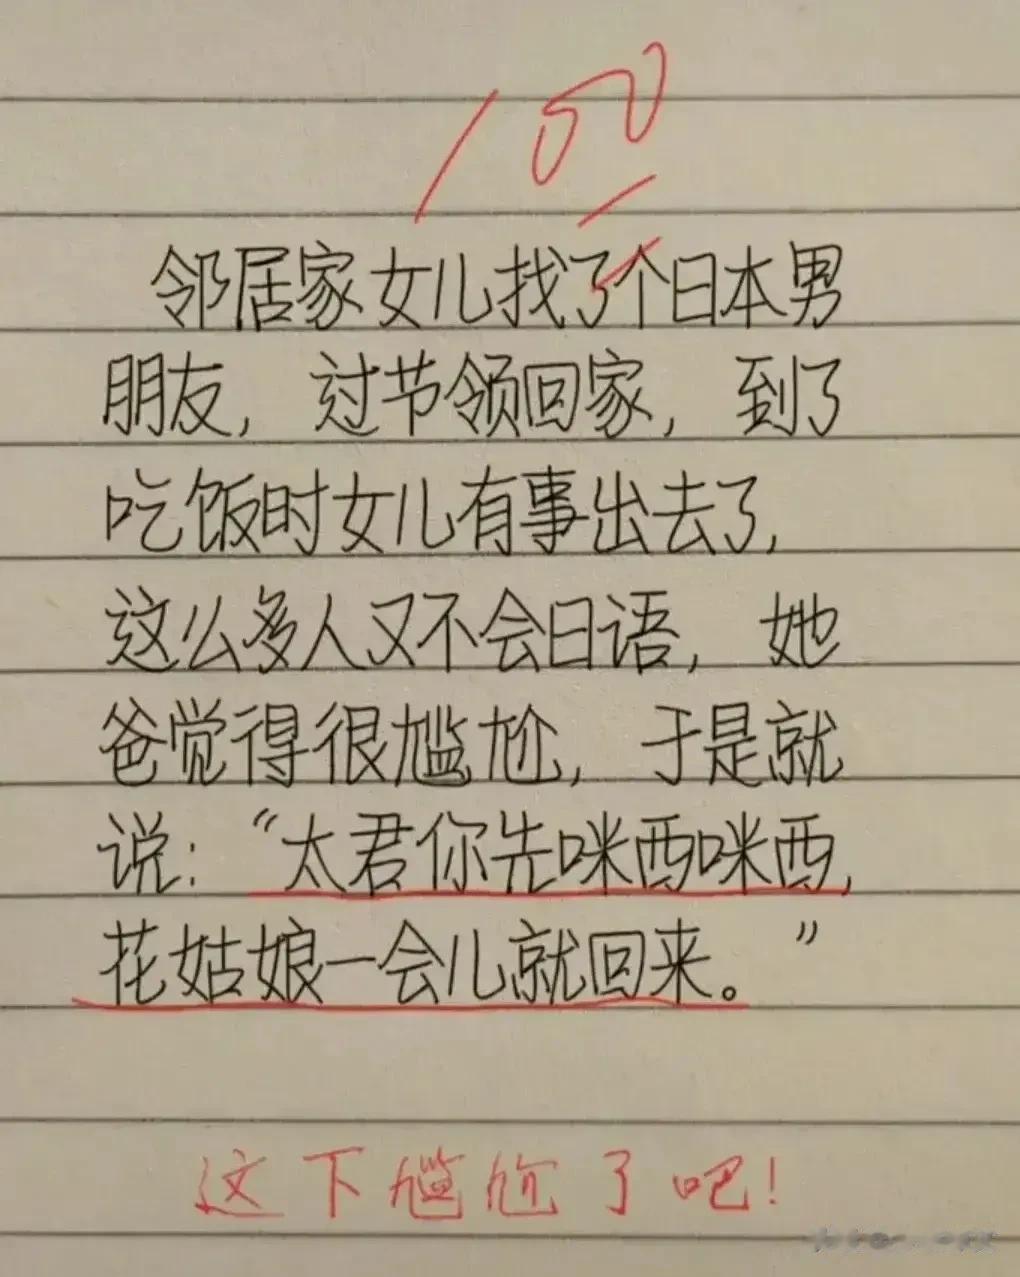 100
邻居家女儿找了个日本男
朋友，过节领回家，到了
吃饭时女儿有事出去了，
这么多人又不会日语，她
爸觉得很尴尬，于是就
说：“太君你先咪西咪西，
花姑娘一会儿就回来。”
这下尴尬了吧！